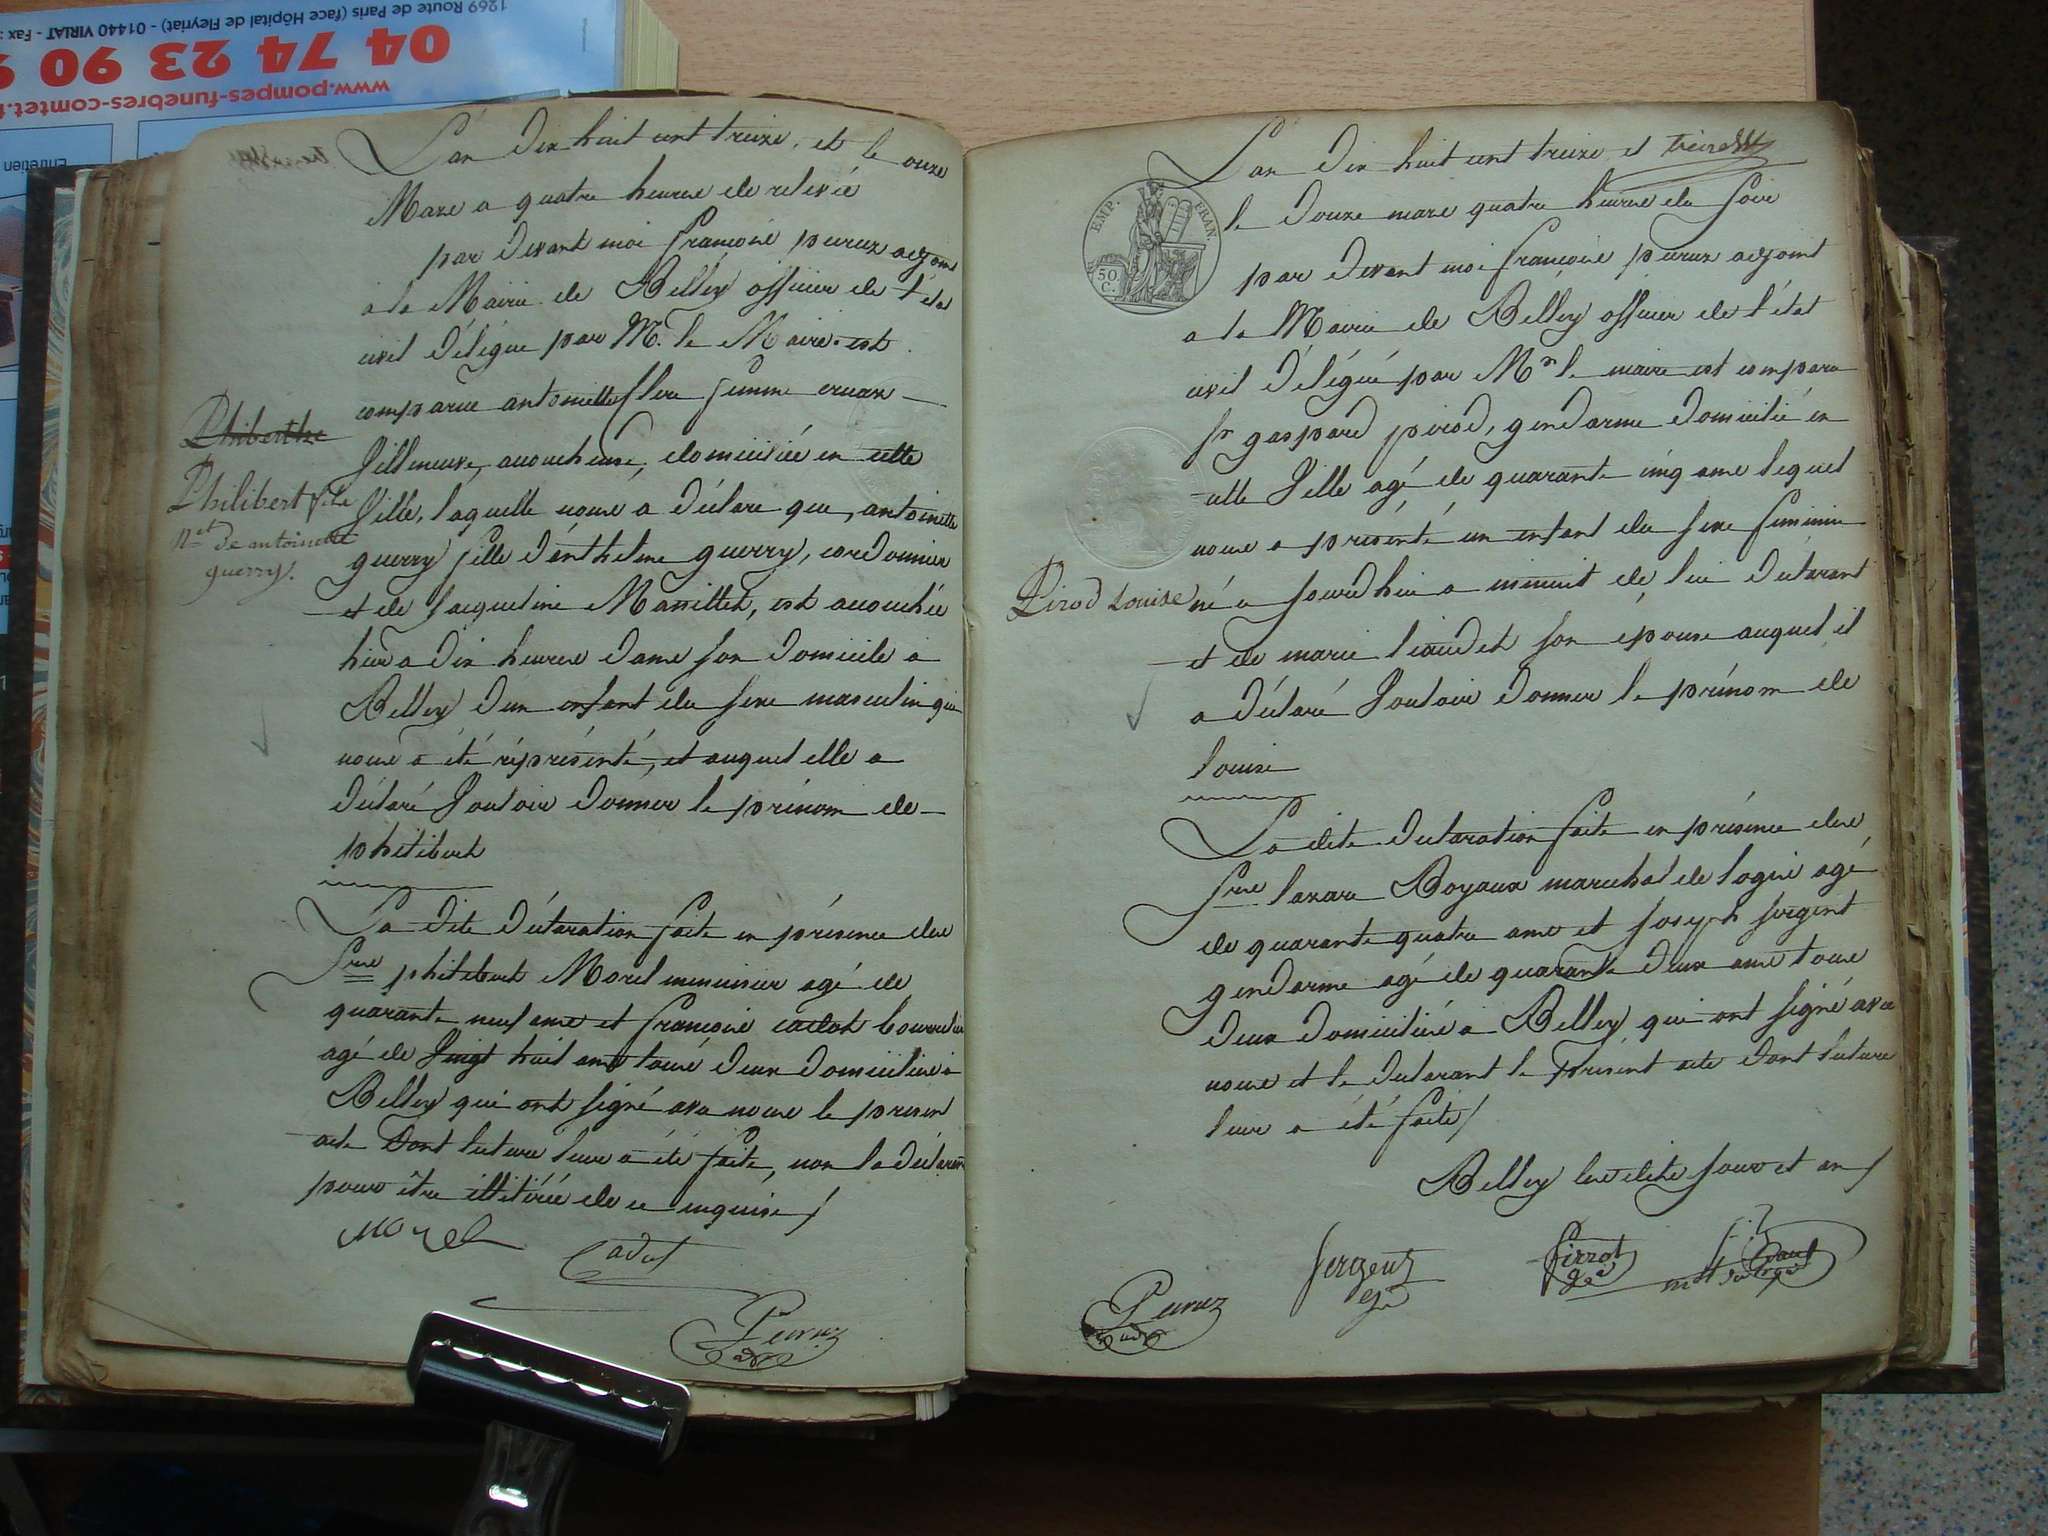 1269 Route de Paris (face Hôpital de Fleyriat) - 01440 VIRIAT - Fax :
04 74 23 90 9
www.pompes-funebres-comtet.f
Entretien
L'an dix huit cent treize, et le onze
Mars a quatre heures de relevée
par devant moi françois peruz adjoint
a la Mairie de Belley officier de l'état
civil délégué par M. le Maire est
comparue antoinette femme
Villeneuve, acoucheuse, domiciliée en cette
Ville, laquelle nous a déclaré que, antoinette
guerry fille d'anthelme guerry, cordonnier
et de Jacqueline Massillet, est acouchée
hier a dix heures dans son domicile a
Belley d'un enfant du sexe masculin qui
nous a été réprésenté, et auquel elle a
déclaré Vouloir donner le prénom de
philibert
La dite déclaration faite en présence des
Srs philibert Morel menuisier agé de
quarante neuf ans et françois cadot bourrelier
agé de Vingt huit ans tous deux domiciliés a
Belley qui ont signé avec nous le présent
acte dont lecture leur a été faite, non la déclarante
pour être illitérée de ce enquise /
Philiberthe
Philibert fils
nel de antoinette
guerry.
Morel
Cadot
Peruz
adj
L'an dix huit cent treize et
le douze mars quatre heures du soir
EMP. FRAN.
50 C.
par devant moi françois peruz adjoint
a la Mairie de Belley officier de l'état
civil délégué par Mr le maire est comparu
Sr gaspard pirod, gendarme domicilié en
cette Ville agé de quarante cinq ans lequel
nous a présenté un enfant du sexe féminin
né a Jourdhui a minuit de, lui déclarant
et de marie liaudet son épouse auquel il
a déclaré Vouloir donner le prénom de
louise
Pirod Louise
La dite déclaration faite en présence des
Srs lazare Boyaux marechal de logis agé
de quarante quatre ans et Joseph Sergent
gendarme agé de quarante deux ans tous
deux domiciliés a Belley qui ont signé avec
nous et le déclarant le présent acte dont lecture
leur a été faite /
Belley les dits jour et an /
Sergent
Pirrot
Peruz
adj